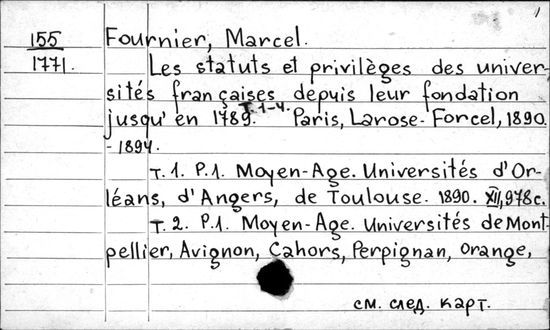 1
155
1771.
Fournier, Marcel.
Les statuts et privilèges des univer-
sités françaises depuis leur fondation
jusqu'en 1789. T. 1-4. Paris, Larose-Forcel, 1890.
-1894.
T. 1. P. 1. Moyen-Age. Universités d'Or-
léans, d'Angers, de Toulouse. 1890. XII, 978 c.
T. 2. P. 1. Moyen-Age. Universités de Mont-
pellier, Avignon, Cahors, Perpignan, Orange,
см. след. карт.